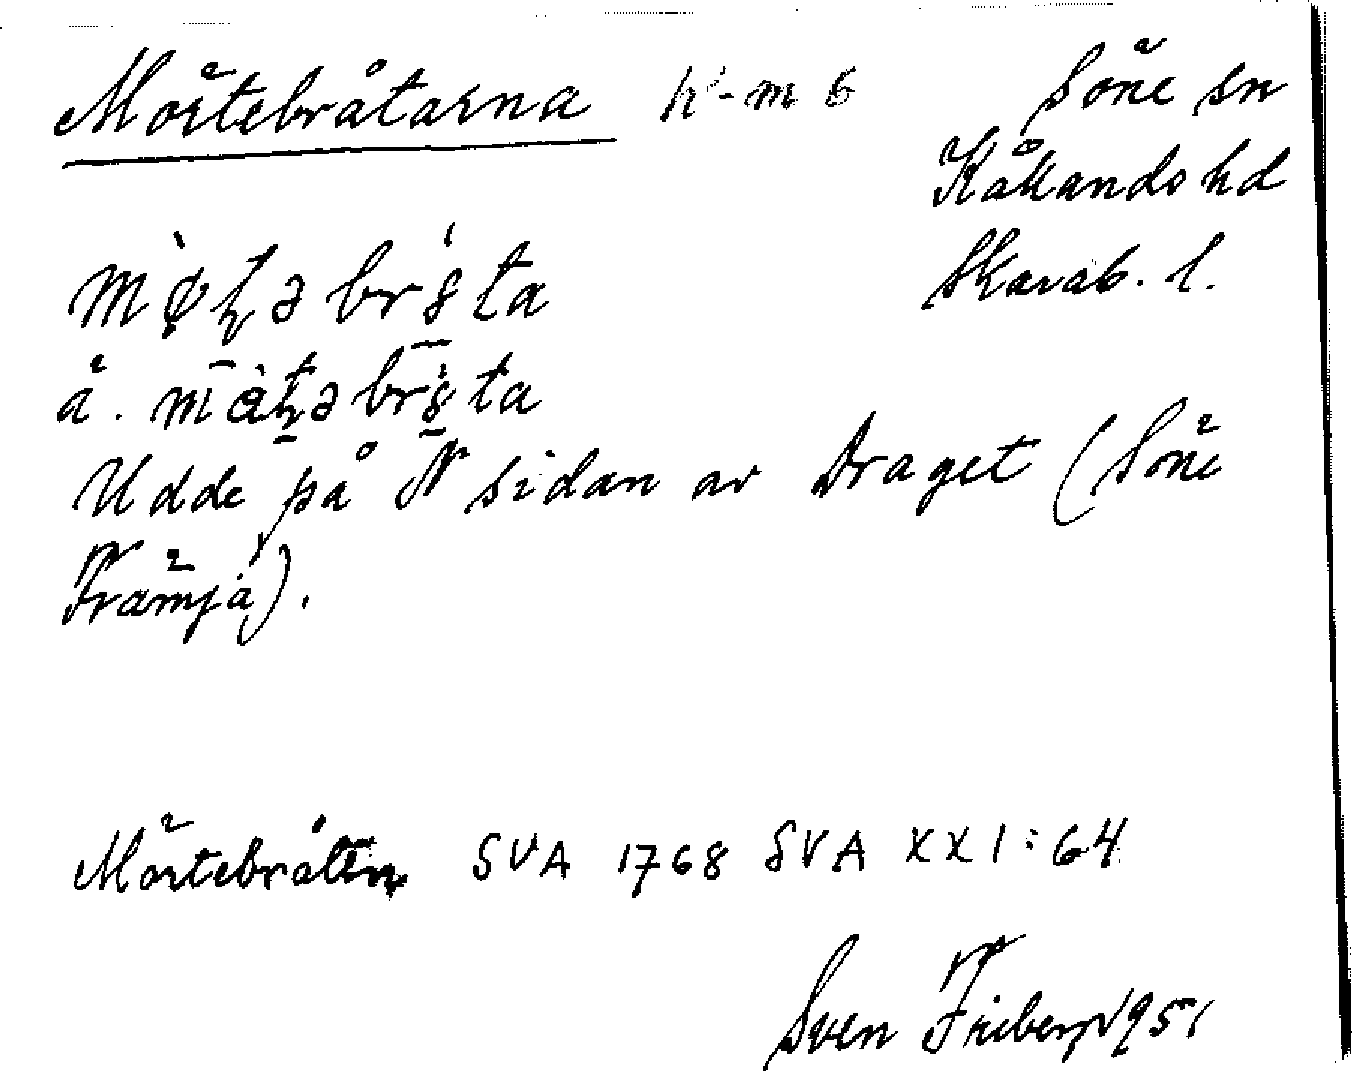 Mörtebråtarna h'-m 6 Söne sn
Kållands hd
Skarab. l.
Udde på N sidan av Draget (Söne
Främja).
Mörtebråten SVA 1768 SVA XXI:64
Sven Friberg 1951